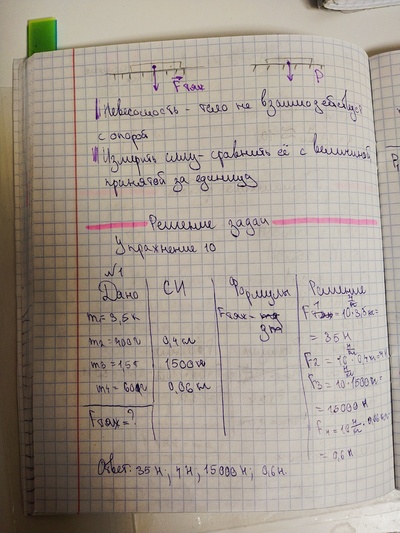 Fтяж
P
Невесомость - тело не взаимодействует
с опорой
Измерить силу - сравнить её с величиной
принятой за единицу
Решение задач
Упражнение 10
№1
Дано СИ Формулы Решение
m = 3,5 к Fтяж = gm F1 = 10 · 3,5 кг =
= 35 Н
m2 = 400г 0,4 кг F2 = 10 Н/кг · 0,4
m3 = 1,5т 1500кг F3 = 10 · 1500кг =
= 15000 Н
m4 = 60г 0,06 кг F4 = 10 Н/кг · 0,06 кг
Fтяж = ? = 0,6 Н
Ответ: 35 Н, 4 Н, 15000 Н, 0,6 Н.